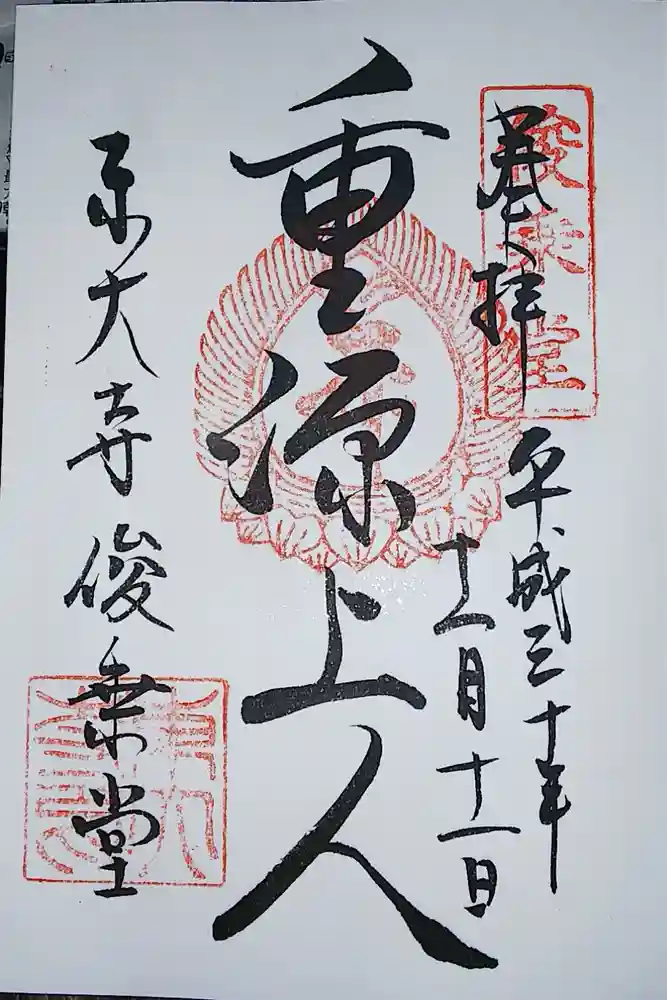 奉拝
俊乗堂
平成三十年
工月十一日
重源上人
東大寺俊乗堂